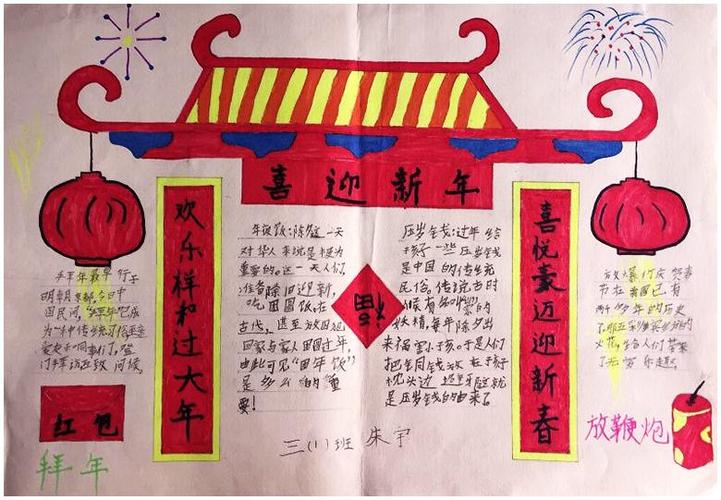 喜迎新年
欢乐样和过大年
年夜饭:除夕这一天
对华人来说是极为
重要的。这一天人们
准备除旧迎新,
吃团圆饭。在
古代,
回家与家人团圆过年,
由此可见"团年饭"
是多么的"重
要!
福
压岁钱:过年给
孩子一些压岁钱
是中国的传统
民俗。传说古时
候有
妖精,每年除夕出
来祸害小孩。于是人们
把
枕头边
是压岁钱的由来了
喜悦豪迈迎新春
拜年最早行于
明朝
国民间,"拜年"已成
为一种传统习俗
们拜访互致问候。
放大爆竹庆贺春
节在我国已有
两千多年的历史
火花,给人们带来
了无穷
红包
拜年
三(1)班 朱宇
放鞭炮